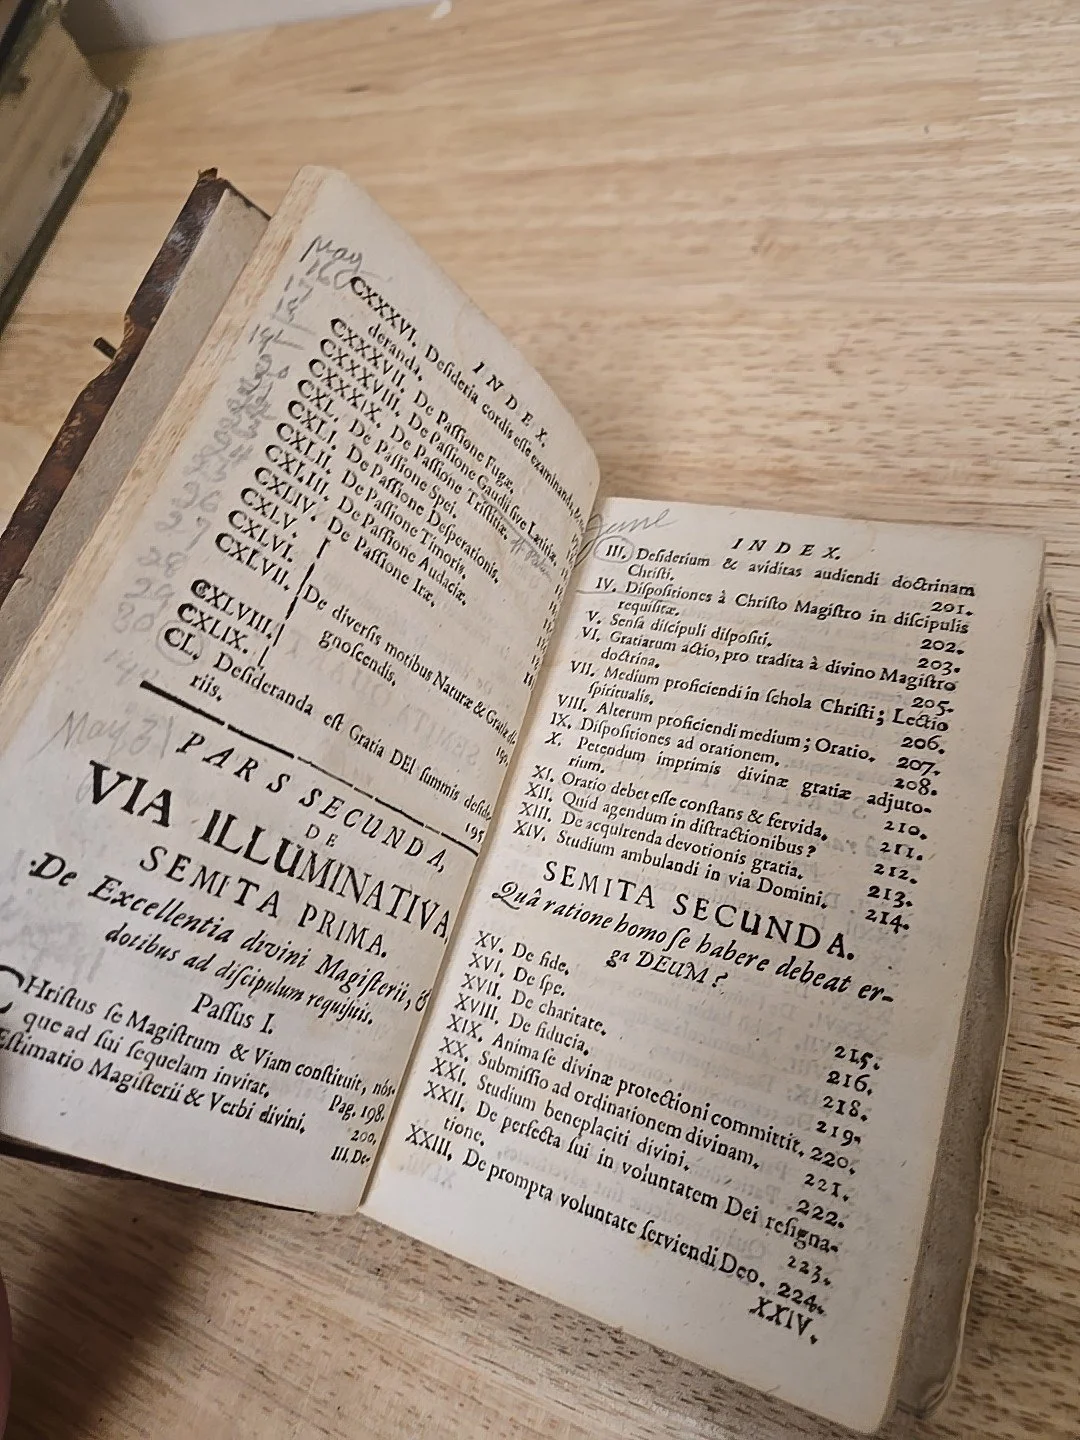 May
16
INDEX.
CXXXVI. Deſideria cordis eſſe examinanda,
deranda.
CXXXVII. De Paſſione Fugæ.
CXXXVIII. De Paſſione Gaudii ſive Lætitiæ.
CXXXIX. De Paſſione Triſtitiæ.
CXL. De Paſſione Spei.
CXLI. De Paſſione Deſperationis.
CXLII. De Paſſione Timoris.
CXLIII. De Paſſione Audaciæ.
CXLIV. De Paſſione Iræ.
CXLV.
CXLVI.
CXLVII. De diverſis motibus Naturæ & Gratiæ
CXLVIII. gnoſcendis.
CXLIX.
CL. Deſideranda eſt Gratia DEI ſummis deſide-
riis. 195
May 31
PARS SECUNDA,
DE
VIA ILLUMINATIVA
SEMITA PRIMA.
De Excellentia divini Magiſterii, &
dotibus ad diſcipulum requiſitis.
Paſſus I.
CHriſtus ſe Magiſtrum & Viam conſtituit, nós-
que ad ſui ſequelam invitat. Pag. 198.
Æſtimatio Magiſterii & Verbi divini. 200.
III. De-
June
INDEX.
III. Deſiderium & aviditas audiendi doctrinam
Chriſti. 201.
IV. Diſpoſitiones à Chriſto Magiſtro in diſcipulis
requiſitæ. 202.
V. Senſa diſcipuli diſpoſiti. 203.
VI. Gratiarum actio, pro tradita à divino Magiſtro
doctrina. 205.
VII. Medium proficiendi in ſchola Chriſti; Lectio
ſpiritualis. 206.
VIII. Alterum proficiendi medium; Oratio. 207.
IX. Diſpoſitiones ad orationem. 208.
X. Petendum imprimis divinæ gratiæ adjuto-
rium. 210.
XI. Oratio debet eſſe conſtans & fervida. 211.
XII. Quid agendum in diſtractionibus? 212.
XIII. De acquirenda devotionis gratia. 213.
XIV. Studium ambulandi in via Domini. 214.
SEMITA SECUNDA.
Quâ ratione homo ſe habere debeat er-
ga DEUM?
XV. De fide. 215.
XVI. De ſpe. 216.
XVII. De charitate. 218.
XVIII. De fiducia. 219.
XIX. Anima ſe divinæ protectioni committit. 220.
XX. Submiſſio ad ordinationem divinam. 221.
XXI. Studium beneplaciti divini. 222.
XXII. De perfecta ſui in voluntatem Dei reſigna-
tione. 223.
XXIII. De prompta voluntate ſerviendi Deo. 224.
XXIV.